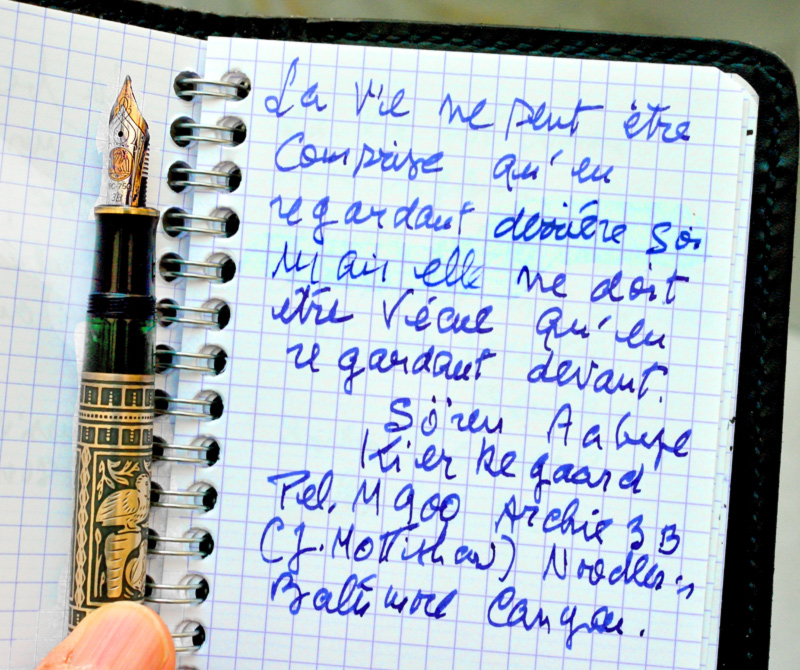 La vie ne peut être
comprise qu'en
regardant derrière soi
Mais elle ne doit
être vécue qu'en
regardant devant.
Sören Aabye
Kierkegaard
Pel. M 900 Archie 3B
(CJ. Mottishaw) Noodler's
Baltimore Canyon.